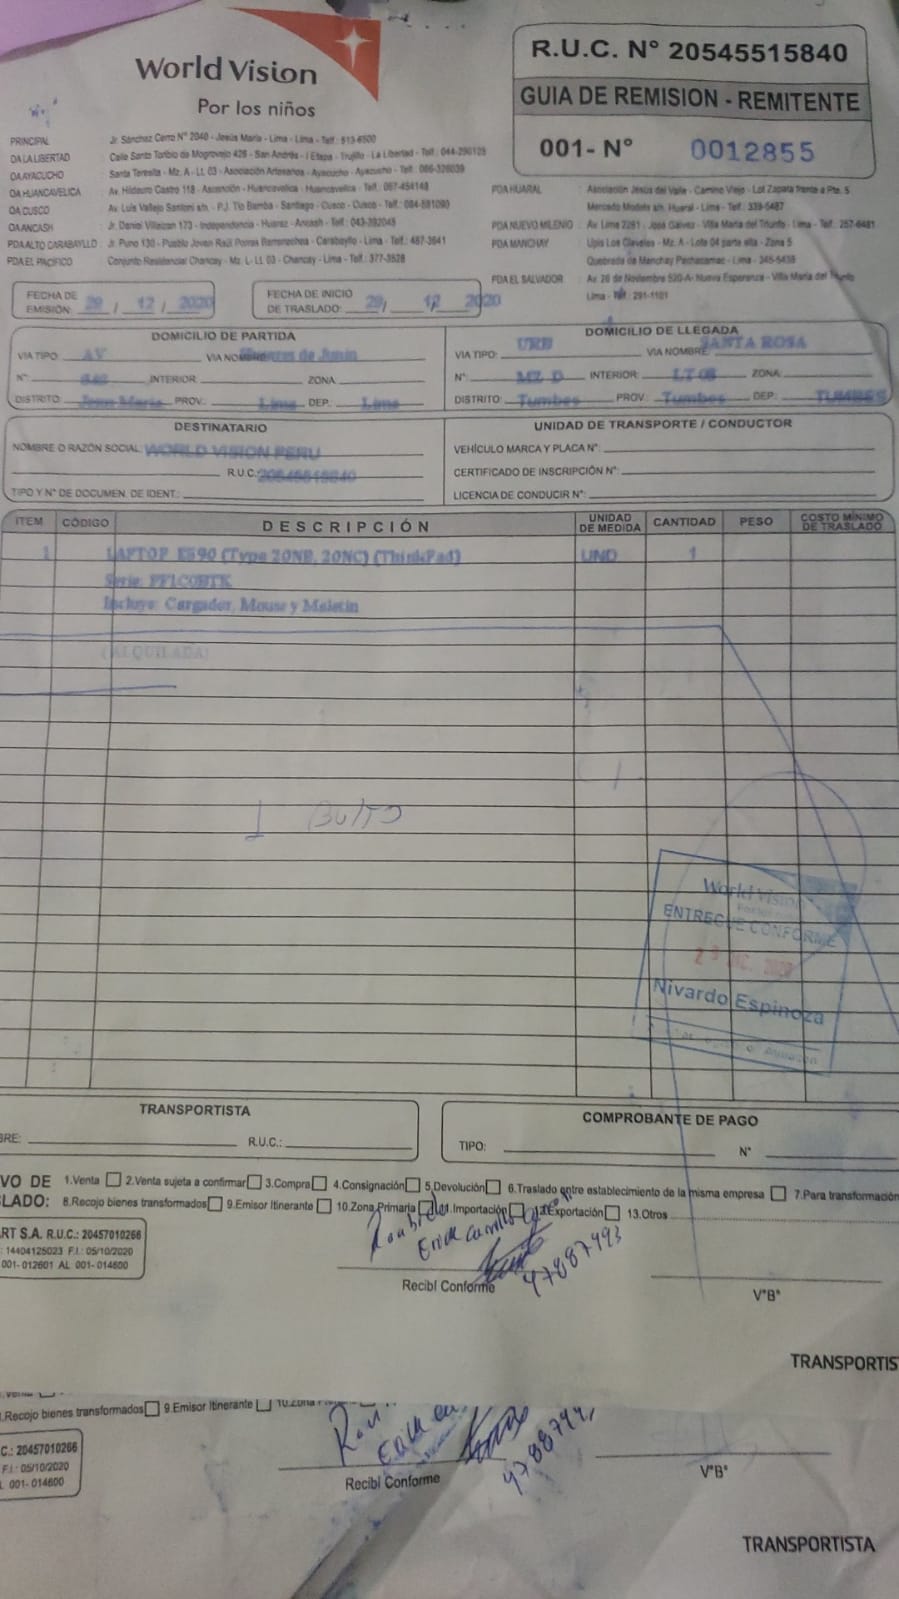 World Vision
Por los niños
R.U.C. N° 20545515840
GUIA DE REMISION - REMITENTE
001- N° 0012855
PRINCIPAL Jr. Sánchez Cerro N° 2040 - Jesús María - Lima - Lima - Telf.: 513-6500
OA LA LIBERTAD Calle Santo Toribio de Mogrovejo 426 - San Andrés - I Etapa - Trujillo - La Libertad - Telf.: 044-290125
OA AYACUCHO Santa Teresita - Mz. A - Lt. 03 - Asociación Artesanos - Ayacucho - Ayacucho - Telf.: 066-326039
OA HUANCAVELICA Av. Hildauro Castro 118 - Ascensión - Huancavelica - Huancavelica - Telf.: 067-454148
OA CUSCO Av. Luis Vallejo Santoni s/n. - P.J. Tío Bamba - Santiago - Cusco - Cusco - Telf.: 084-
OA ANCASH Jr. Daniel Villaizan 173 - Independencia - Huaraz - Ancash - Telf.: 043-392045
PDA ALTO CARABAYLLO Jr. Puno 130 - Pueblo Joven Raúl Porras Barrenechea - Carabayllo - Lima - Telf.: 467-3641
PDA EL PACIFICO Conjunto Residencial Chancay - Mz. L - Lt. 03 - Chancay - Lima - Telf.: 377-3528
PDA HUARAL : Asociación Jesús del Valle - Camino Viejo - Lot Zapata frente a Pte. 5
Mercado Modelo s/n. Huaral - Lima - Telf.: 339-5487
PDA NUEVO MILENIO : Av. Lima 2261 - José Galvez - Villa María del Triunfo - Lima - Telf.: 257-6481
PDA MANCHAY : Upis Los Claveles - Mz. A - Lote 04 parte alta - Zona 5
Quebrada de Manchay Pachacamac - Lima - 345-5438
PDA EL SALVADOR : Av. 26 de Noviembre 520-A- Nueva Esperanza - Villa María del Triunfo
Lima - Telf.: 291-1101
FECHA DE EMISIÓN: 29 / 12 / 2020
FECHA DE INICIO DE TRASLADO: 29/ 12 2020
DOMICILIO DE PARTIDA
VIA TIPO: AV VIA NOMBRE: de Junin
N°: INTERIOR: ZONA:
DISTRITO: Jesus Maria PROV.: Lima DEP.: Lima
DOMICILIO DE LLEGADA
VIA TIPO: URB VIA NOMBRE: SANTA ROSA
N°: MZ D INTERIOR: LT 08 ZONA:
DISTRITO: Tumbes PROV: Tumbes DEP: TUMBES
DESTINATARIO
NOMBRE O RAZÓN SOCIAL: WORLD VISION PERU
R.U.C.: 20545515840
TIPO Y N° DE DOCUMEN. DE IDENT.:
UNIDAD DE TRANSPORTE / CONDUCTOR
VEHÍCULO MARCA Y PLACA N°:
CERTIFICADO DE INSCRIPCIÓN N°:
LICENCIA DE CONDUCIR N°:
ITEM CÓDIGO DESCRIPCIÓN UNIDAD DE MEDIDA CANTIDAD PESO COSTO MÍNIMO DE TRASLADO
1 LAPTOP E590 (Type 20NB, 20NC) (ThinkPad) UND 1
Serie:
Incluye: Cargador, Mouse y Maletin
(ALQUILADA)
1 BULTO
World Vision
ENTREGUE CONFORME
Nivardo Espinoza
TRANSPORTISTA
BRE: R.U.C.:
COMPROBANTE DE PAGO
TIPO: N°
VO DE 1.Venta 2.Venta sujeta a confirmar 3.Compra 4.Consignación 5.Devolución 6.Traslado entre establecimiento de la misma empresa 7.Para transformación
LADO: 8.Recojo bienes transformados 9.Emisor Itinerante 10.Zona Primaria 11.Importación 12.Exportación 13.Otros
ART S.A. R.U.C.: 20457010266
: 14404125023 F.I.: 05/10/2020
001- 012601 AL 001- 014600
Erick Carrillo
47887493
Recibí Conforme
V°B°
TRANSPORTIS
.Recojo bienes transformados 9.Emisor Itinerante 10.Zona
C.: 20457010266
F.I.: 05/10/2020
L 001- 014600
Recibí Conforme
V°B°
TRANSPORTISTA